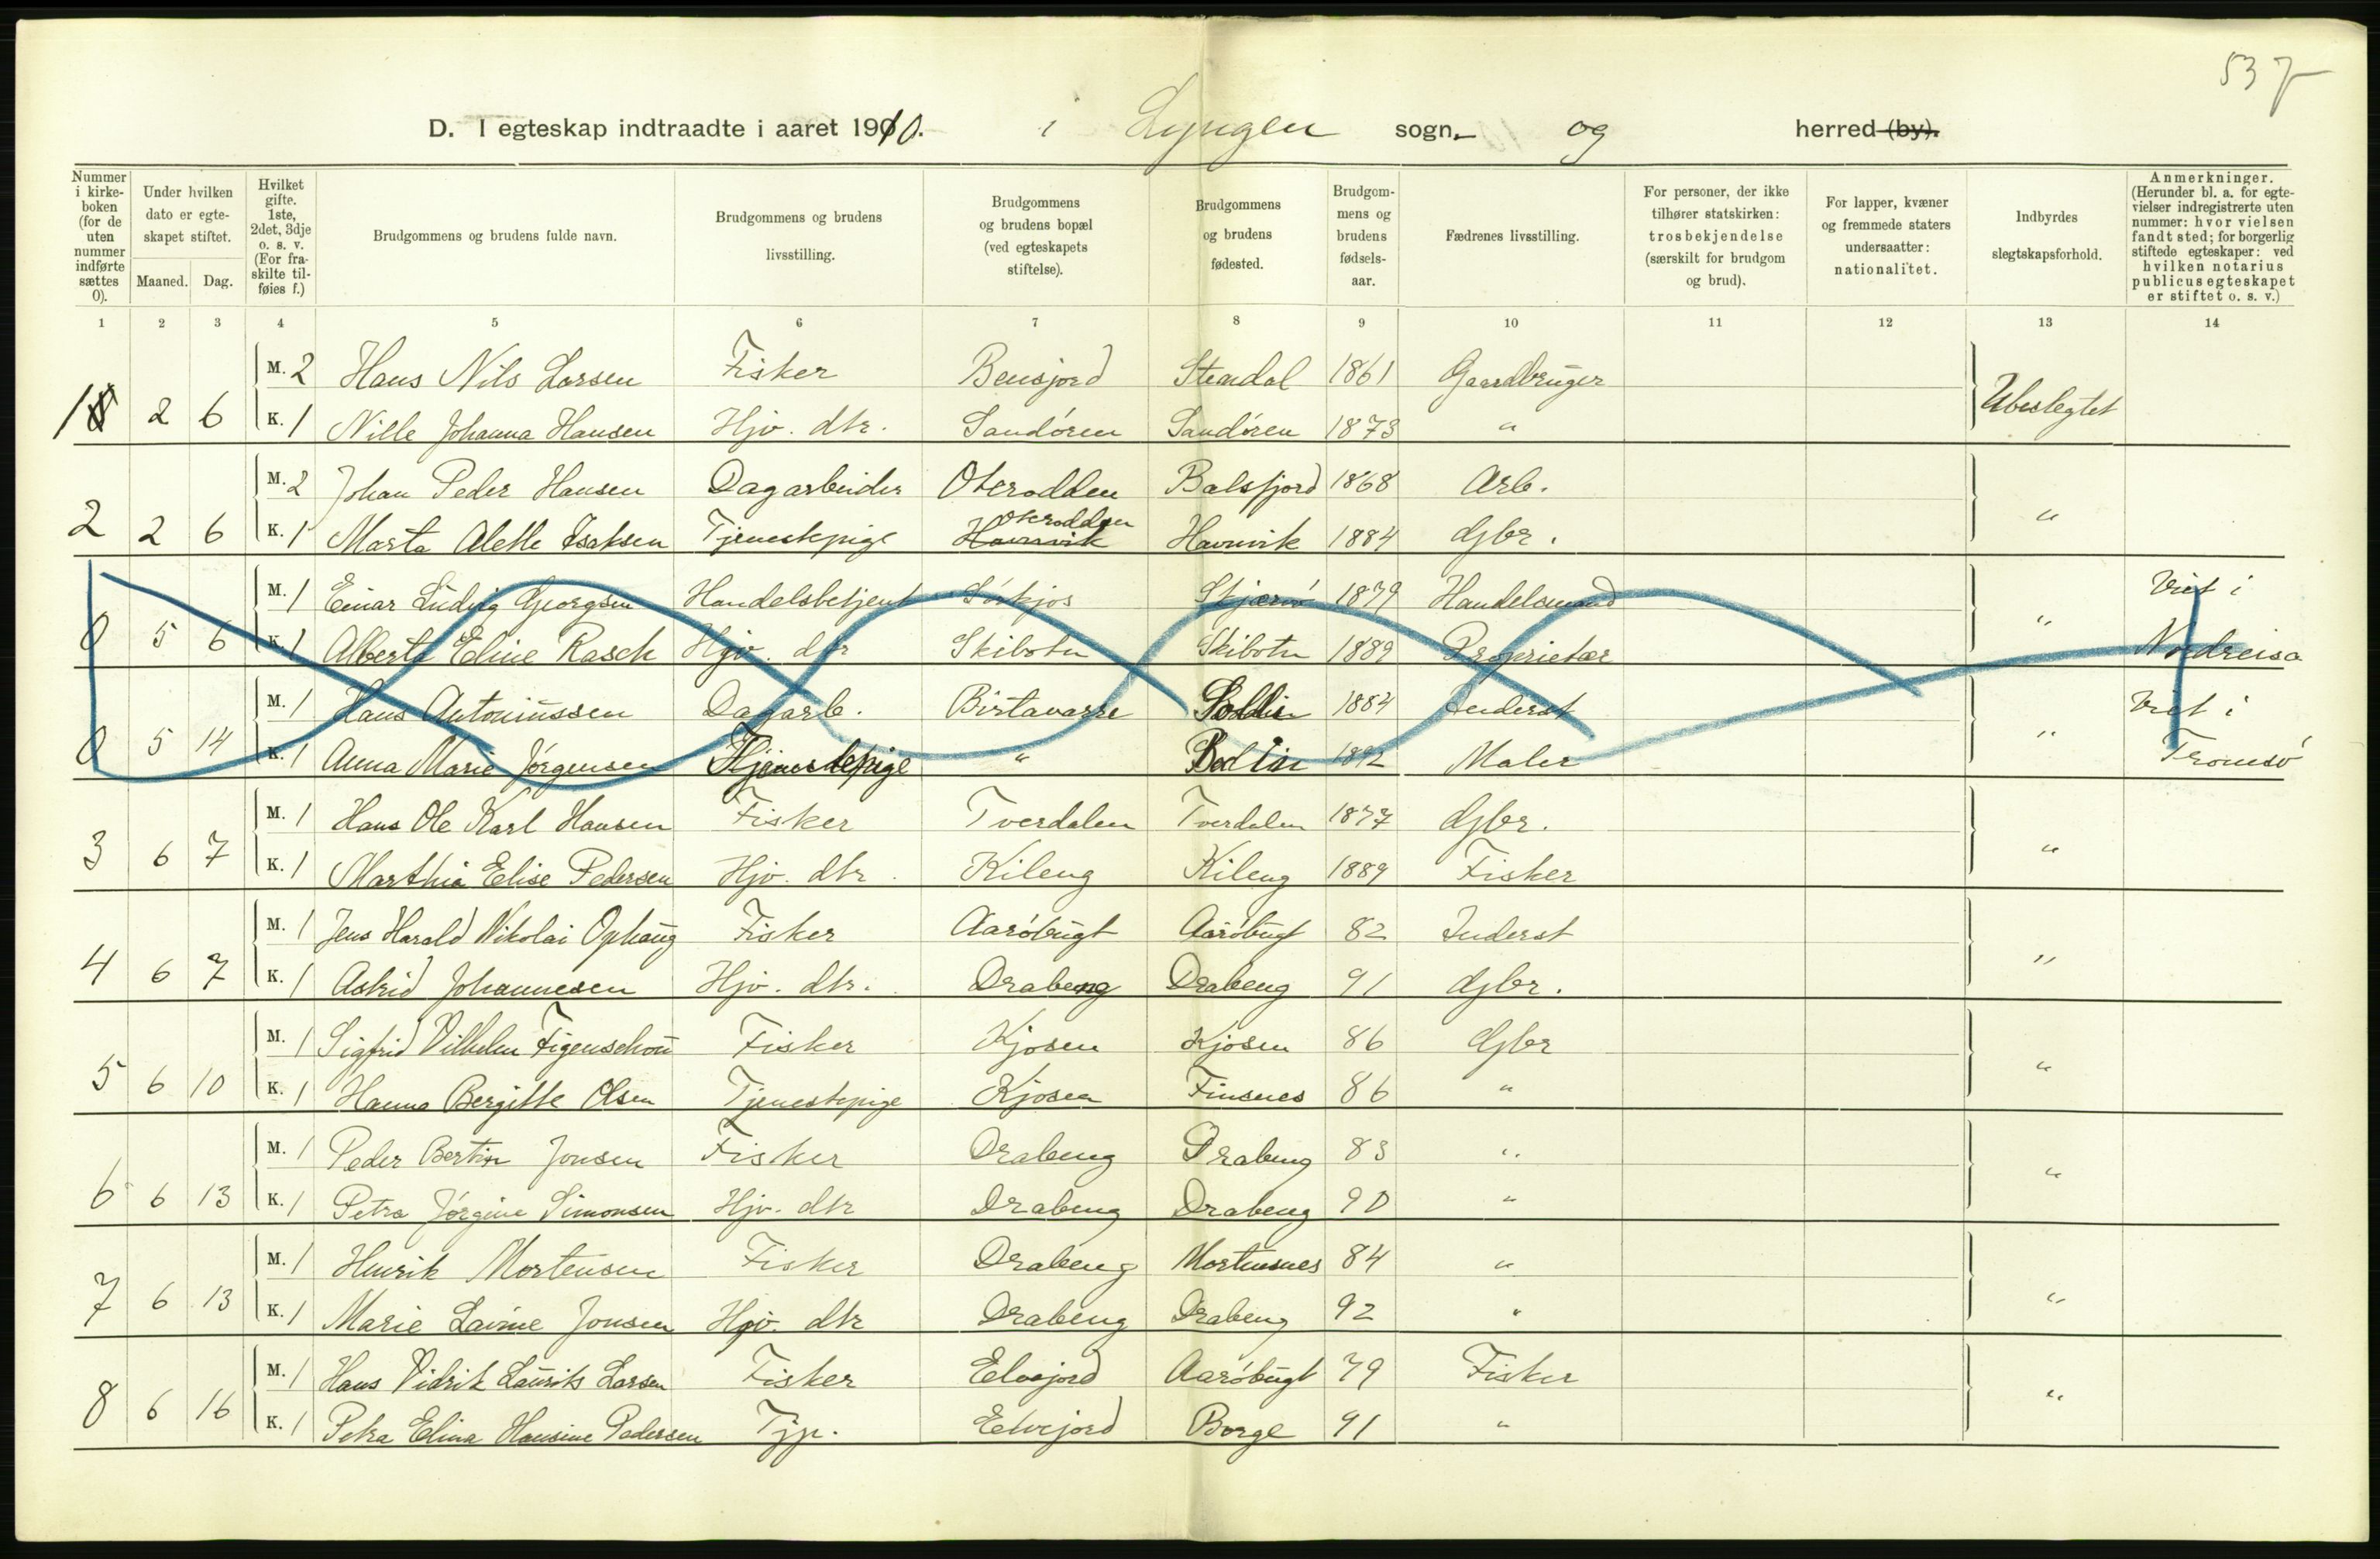 537
D. I egteskap indtraadte i aaret 1910. i Lyngen sogn og herred (by).
Nummer i kirkeboken (for de uten nummer indførte sættes 0).
Under hvilken dato er egteskapet stiftet.
Maaned. Dag.
Hvilket gifte. 1ste, 2det, 3dje o. s. v. (For fraskilte tilføies f.)
Brudgommens og brudens fulde navn.
Brudgommens og brudens livsstilling.
Brudgommens og brudens bopæl (ved egteskapets stiftelse).
Brudgommens og brudens fødested.
Brudgommens og brudens fødselsaar.
Fædrenes livsstilling.
For personer, der ikke tilhører statskirken: trosbekjendelse (særskilt for brudgom og brud).
For lapper, kvæner og fremmede staters undersaatter: nationalitet.
Indbyrdes slegtskapsforhold.
Anmerkninger. (Herunder bl. a. for egtevielser indregistrerte uten nummer: hvor vielsen fandt sted; for borgerlig stiftede egteskaper: ved hvilken notarius publicus egteskapet er stiftet o. s. v.)
1 2 3 4 5 6 7 8 9 10 11 12 13 14
M. 2 Hans Nils Larsen Fisker Bensjord Stendal 1861 Gaardbruger
1 2 6 K. 1 Nille Johanna Hansen Hjv. dtr. Sandøren Sandøren 1873 " Ubeslegtet
M. 2 Johan Peder Hansen Dagarbeider Oterodden Balsfjord 1868 Arb.
Oterodden
2 2 6 K. 1 Marta Alette Isaksen Tjenestepige Havnvik Havnvik 1884 Gbr. "
M. 1 Einar Ludvig Georgsen Handelsbetjent Sørkjos Skjærvø 1879 Handelsmand Viet i
0 5 6 K. 1 Alberta Eline Rasch Hjv. dtr Skibotn Skibotn 1889 Proprietær " Nordreisa
M. 1 Hans Antoniussen Dagarb. Birtavarre 1884 Inderst Viet i
0 5 14 K. 1 Anna Marie Jørgensen Tjenestepige " 1892 Maler " Tromsø
M. 1 Hans Ole Karl Hansen Fisker Tverdalen Tverdalen 1877 Gbr.
3 6 7 K. 1 Marthia Elise Pedersen Hjv. dtr. Kileng Kileng 1889 Fisker "
M. 1 Jens Harald Nikolai Ophaug Fisker Aarøbugt Aarøbugt 82 Inderst
4 6 7 K. 1 Astrid Johannesen Hjv. dtr. Drabeng Drabeng 91 Gbr. "
M. 1 Sigfrid Vilhelm Figenschou Fisker Kjosen Kjosen 86 Gbr
5 6 10 K. 1 Hanna Bergitte Olsen Tjenestepige Kjosen Finsnes 86 " "
M. 1 Peder Bertin Jonsen Fisker Drabeng Drabeng 83 "
6 6 13 K. 1 Petra Jørgine Simonsen Hjv. dtr Drabeng Drabeng 90 " "
M. 1 Henrik Mortensen Fisker Drabeng Mortensnes 84 "
7 6 13 K. 1 Marie Lavine Jonsen Hjv. dtr Drabeng Drabeng 92 " "
M. 1 Hans Didrik Laurits Larsen Fisker Eelvejord Aarøbugt 79 Fisker
8 6 16 K. 1 Petra Elina Hansine Pedersen Tjp. Eelvejord Borge 91 " "